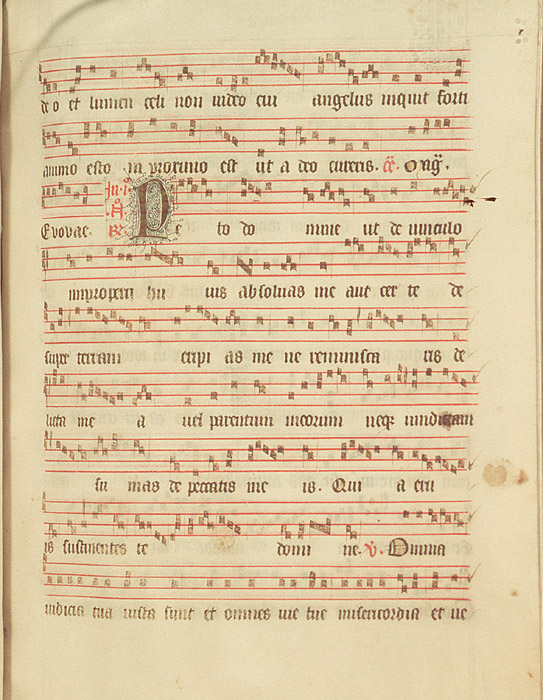 deo et lumen celi non video cui angelus inquit forti
animo esto in proximo est ut a deo cureris. Mag̅.
Evovae. Peto domine ut de vinculo
improperii huius absolvas me aut certe de
super terram eripias me ne reminiscaris de
licta mea vel parentum meorum neq; vindictam
sumas de peccatis meis. Qui a eru
is sustinentes te domine. V̅. Omnia
iudicia tua iusta sunt et omnes vie tue misericordia et ve